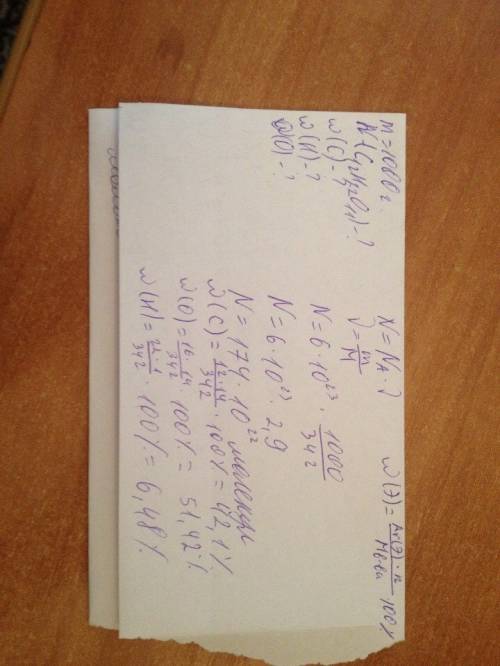 m=1000 г.
N(C12H22O11)-?
ω(C)-?
ω(H)-?
ω(O)-?
N=NA·ν
ν=m/M
N=6·10^23·1000/342
N=6·10^23·2,9
N=174·10^22 молекул
ω(C)=12·14/342·100%=42,1%
ω(O)=16·14/342·100%=51,42%
ω(H)=22·1/342·100%=6,48%
ω(Э)=Ar(Э)·n/Mв-ва·100%